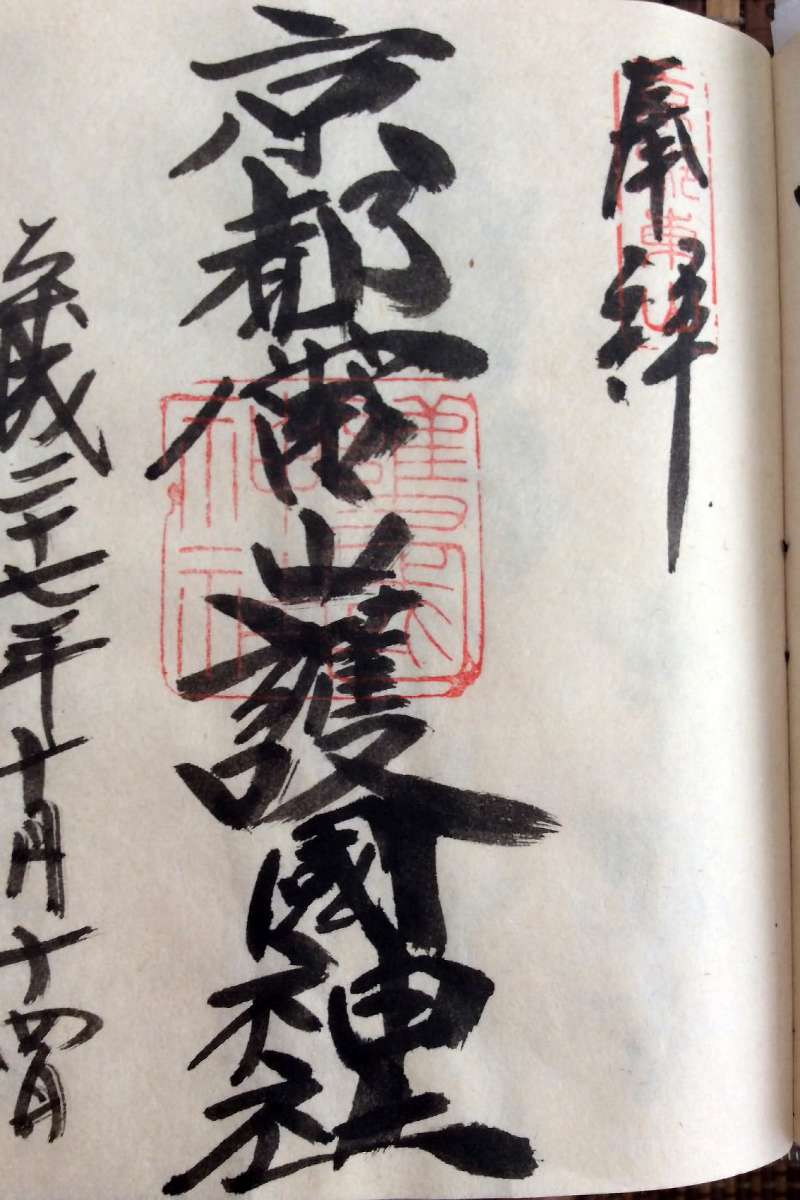 奉拝
京都霊山護國神社
平成二十七年十月十四日